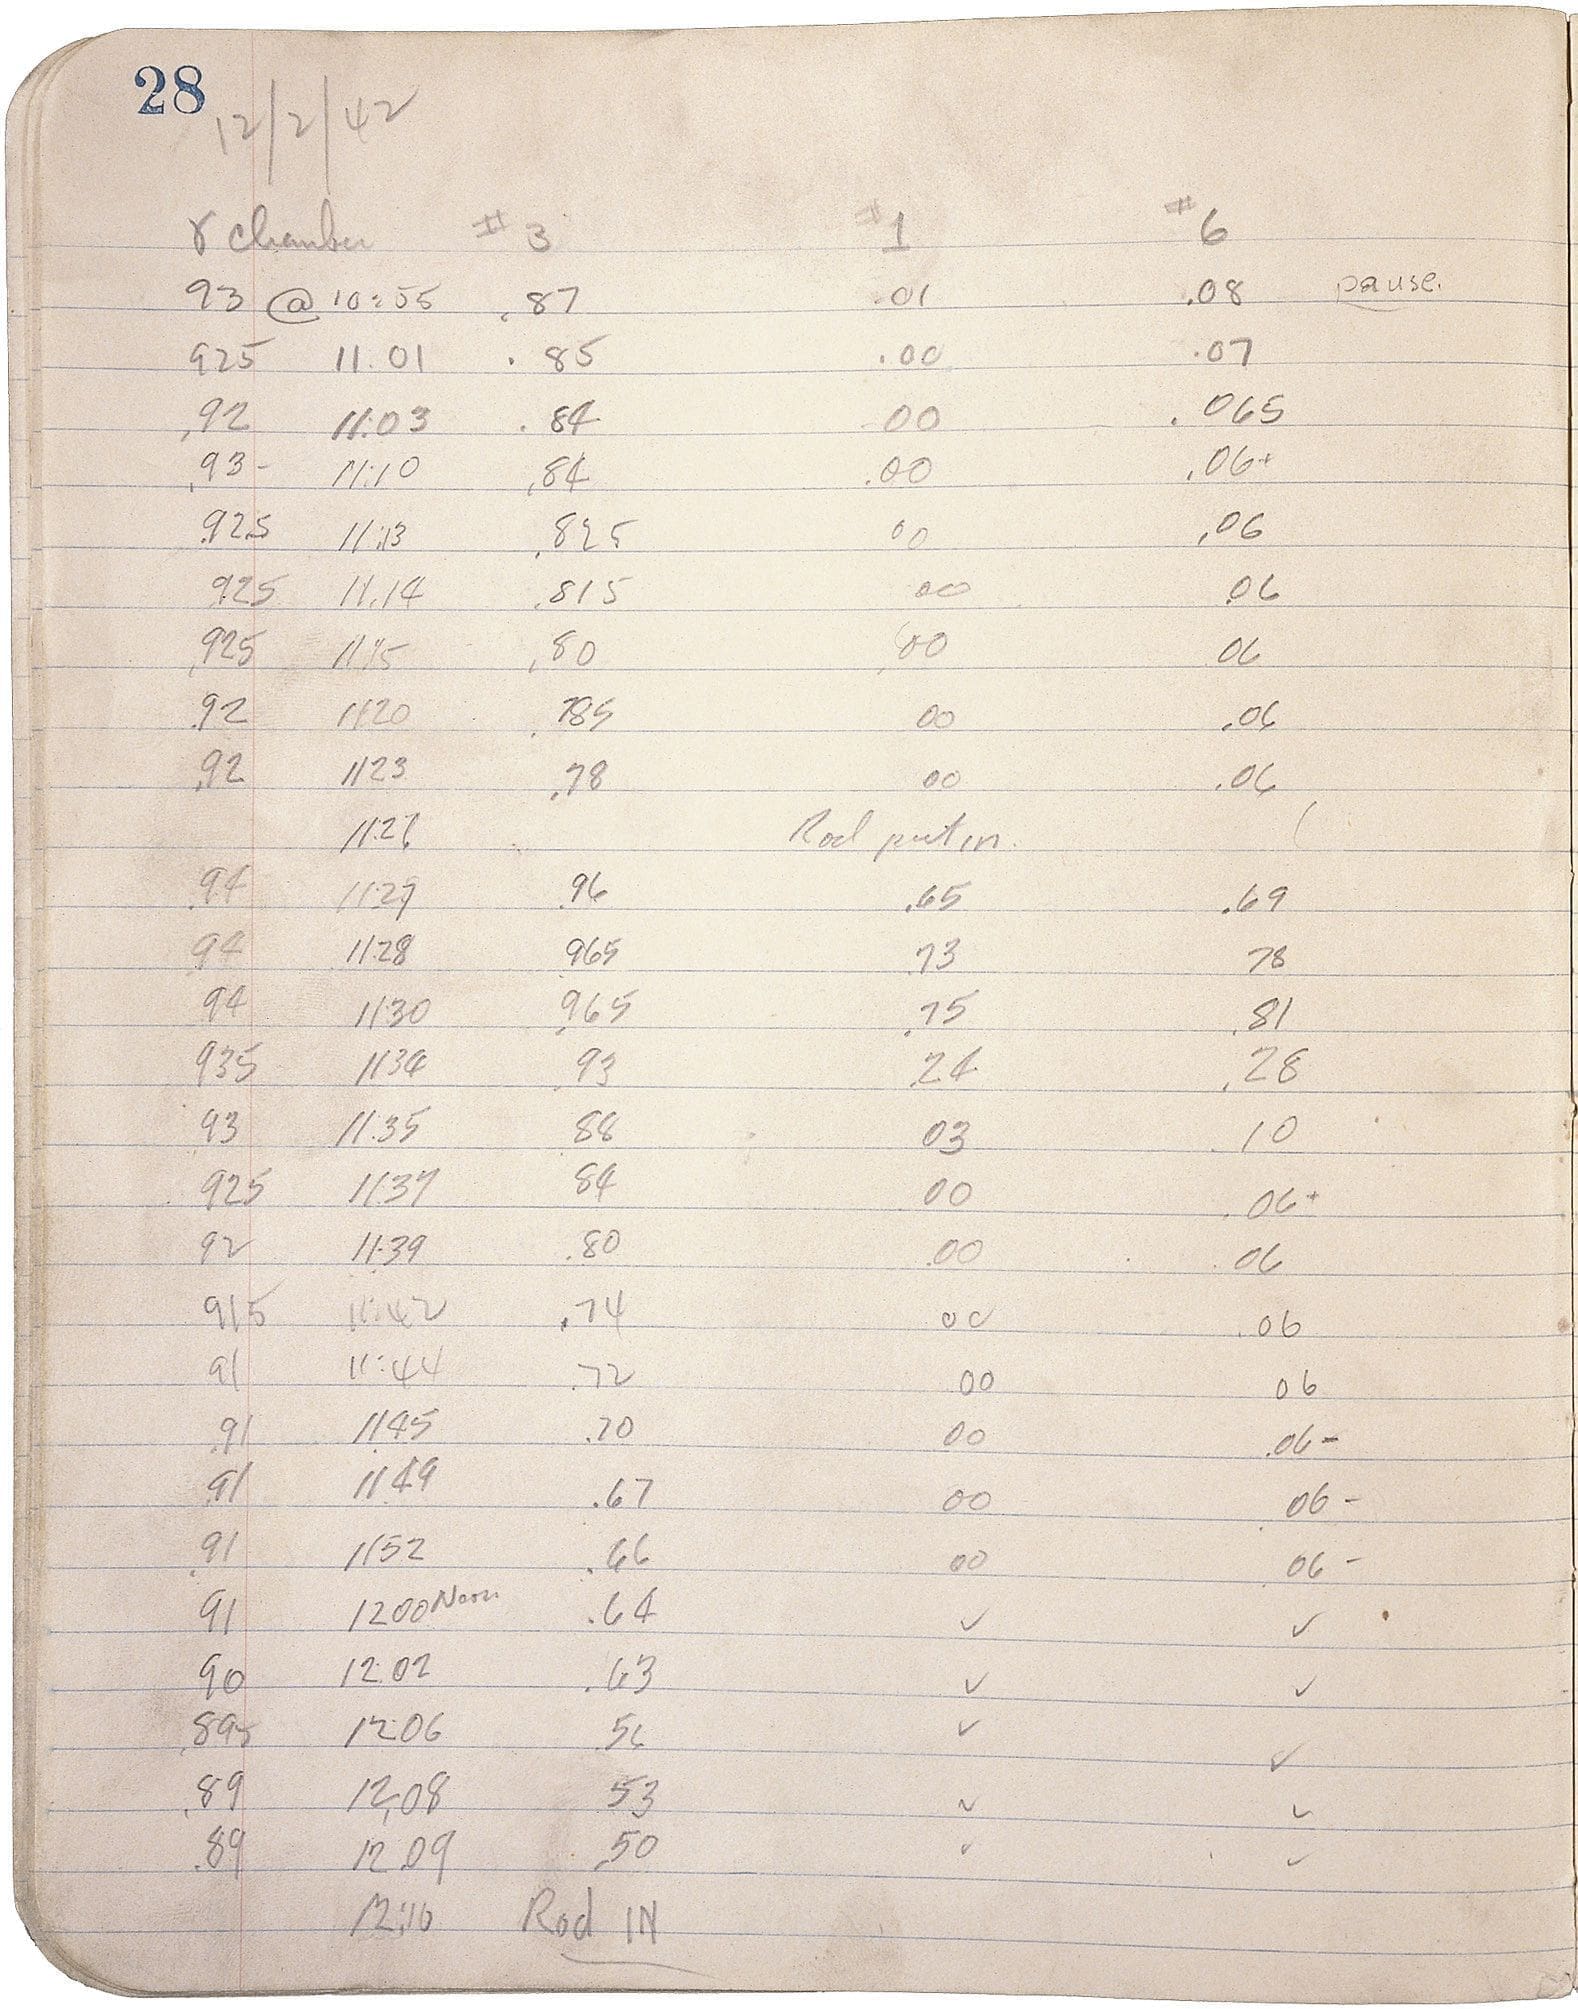 28
12/2/42
γ chamber # 3 # 1 # 6
93 @ 10:55 .87 .01 .08 pause.
925 11.01 .85 .00 .07
.92 11:03 .84 00 .065
.93- 11:10 .84 .00 .06+
.925 11:13 .825 00 .06
925 11.14 .815 00 .06
.925 11:15 .80 .00 06
.92 1120 .785 00 .06
.92 1123 .78 00 .06
Rod put in.
.94 .96 .65 .69
94 1128 965 73 78
94 1130 .965 .75 .81
935 1134 .93 .24 .28
93 11.35 88 03 .10
925 1137 84 00 .06+
92 11.39 .80 .00 06
915 11:42 .74 00 .06
91 11:44 .72 00 06
.91 1145 .70 00 .06-
.91 1149 .67 00 .06-
.91 1152 .66 00 .06-
91 1200 Noon .64 ✓ ✓
90 12.02 .63 ✓ ✓
.895 1206 ✓ ✓
.89 12.08 .53 ✓ ✓
.89 12.09 .50 ✓ ✓
12:10 Rod IN